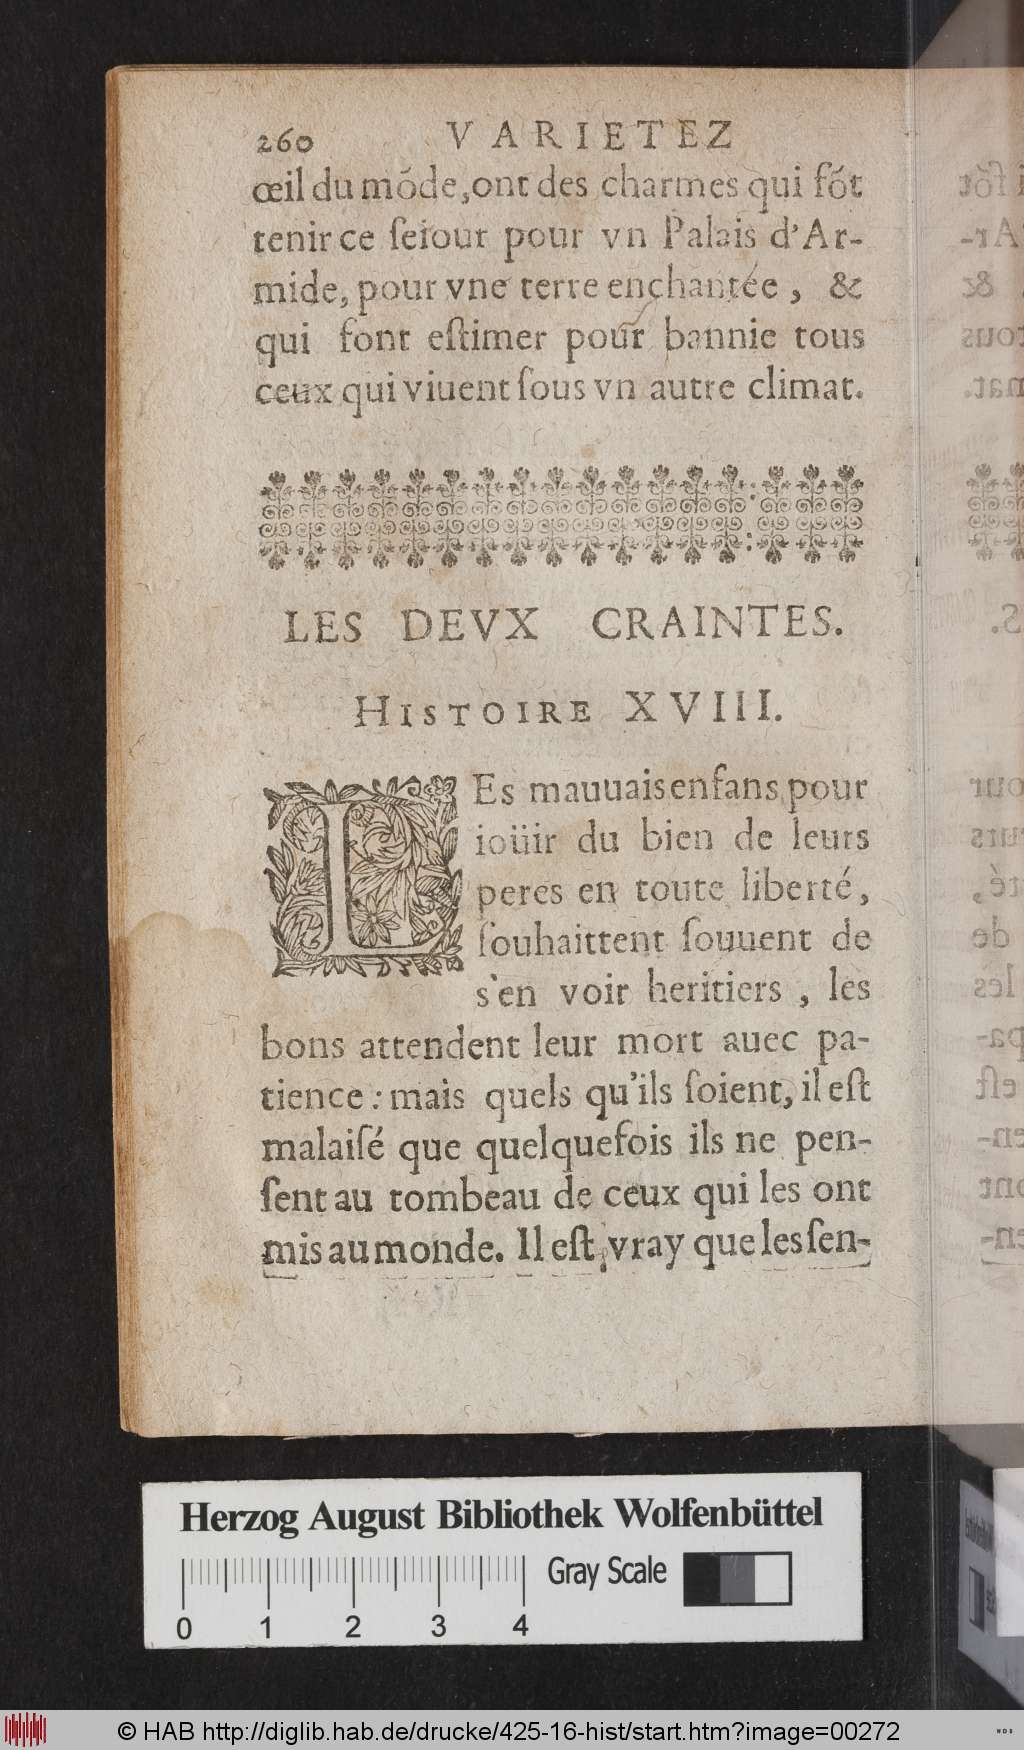 260 VARIETEZ
œil du mõde, ont des charmes qui fõt
tenir ce ſeiour pour vn Palais d'Ar-
mide, pour vne terre enchantée, &
qui font eſtimer pour bannie tous
ceux qui viuent ſous vn autre climat.
LES DEVX CRAINTES.
HISTOIRE XVIII.
LEs mauuais enfans pour
ioüir du bien de leurs
peres en toute liberté,
ſouhaittent ſouuent de
s'en voir heritiers, les
bons attendent leur mort auec pa-
tience : mais quels qu'ils ſoient, il eſt
malaiſé que quelquefois ils ne pen-
ſent au tombeau de ceux qui les ont
mis au monde. Il eſt vray que les ſen-
Herzog August Bibliothek Wolfenbüttel
Gray Scale
0 1 2 3 4
© HAB http://diglib.hab.de/drucke/425-16-hist/start.htm?image=00272